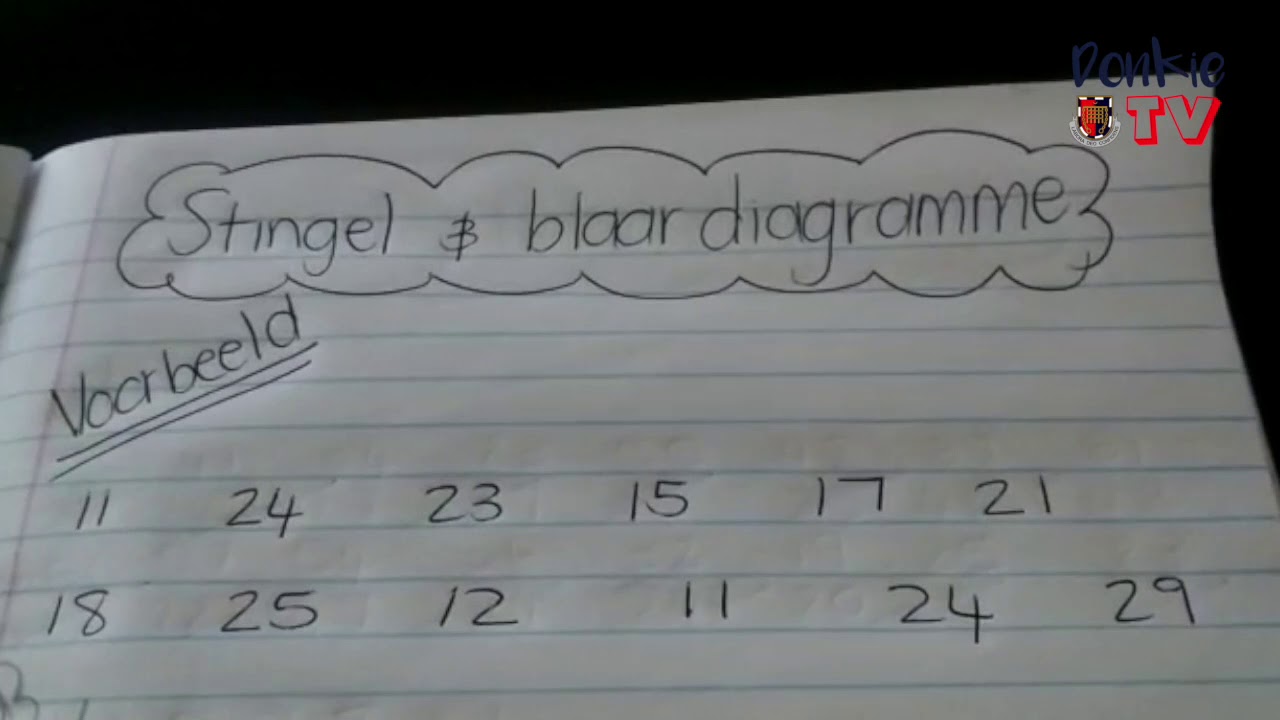 Donkie
TV
Stingel & blaardiagramme
Voorbeeld
11 24 23 15 17 21
18 25 12 11 24 29